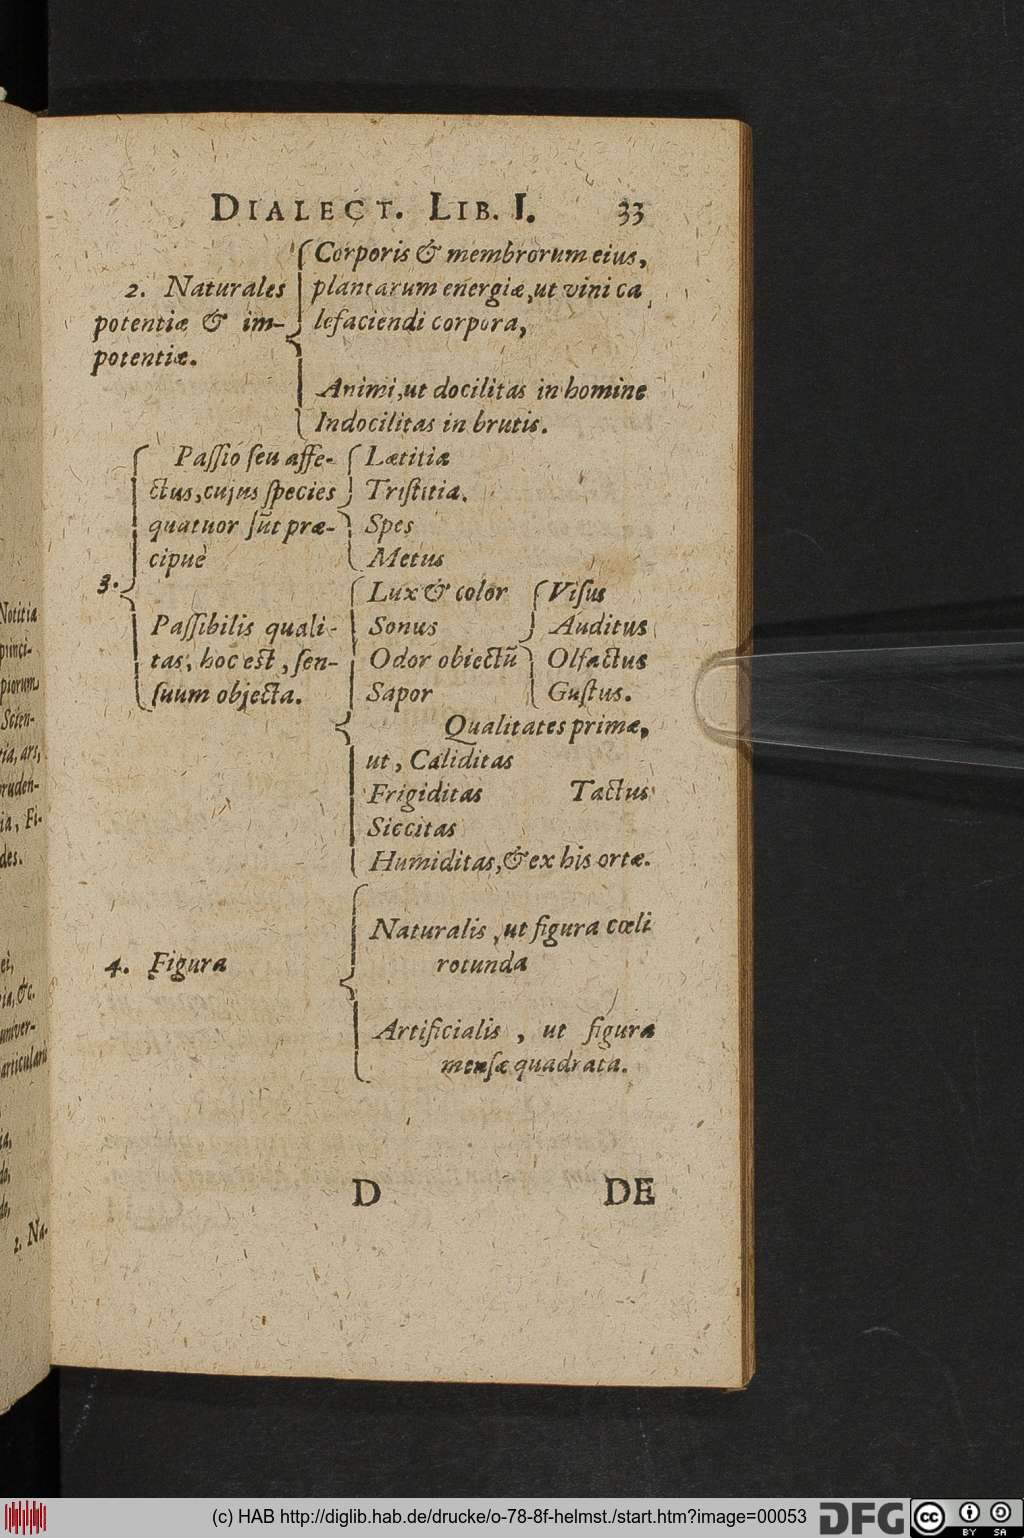 DIALECT. LIB. I. 33
2. Naturales
potentiæ & im-
potentiæ.
Corporis & membrorum eius,
plantarum energiæ, ut vini ca
lefaciendi corpora,
Animi, ut docilitas in homine
Indocilitas in brutis.
3.
Paſſio ſeu affe-
ctus, cujus ſpecies
quatuor ſūt præ-
cipuè
Lætitia
Triſtitia.
Spes
Metus
Paſſibilis quali-
tas, hoc est, ſen-
ſuum objecta.
Lux & color
Sonus
Odor obiectū
Sapor
Viſus
Auditus
Olfactus
Guſtus.
Qualitates primæ,
ut, Caliditas
Frigiditas Tactus
Siccitas
Humiditas, & ex his ortæ.
4. Figura
Naturalis, ut figura cœli
rotunda
Artificialis, ut figura
menſæ quadrata.
D DE
Notitia
princi-
piorum
Scien-
tia, ars,
pruden-
tia, Fi-
des.
2. Na-
(c) HAB http://diglib.hab.de/drucke/o-78-8f-helmst./start.htm?image=00053
DFG
cc BY SA